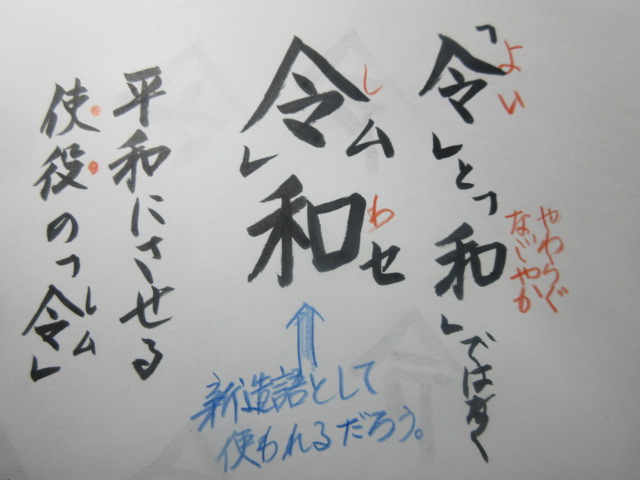 「令」と「和」ではなく
よい
やわらぐ
なごやか
令ム」和セ
し
わ
平和にさせる
使役の「令ム」
レ
新造語として
使われるだろう。